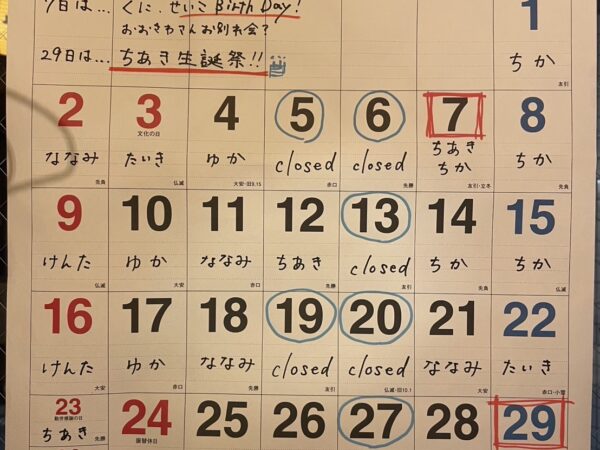 7日は… くに、せいこ Birth Day!
おおさわさんお別れ会?
29日は… ちあき生誕祭!!
1
ちか
友引
2 3 4 5 6 7 8
文化の日
ななみ たいき ゆか closed closed ちあき ちか
ちか
先負 仏滅 大安・旧9.15 赤口 先勝 友引・立冬 先負
9 10 11 12 13 14 15
けんた ゆか ななみ ちあき closed ちか ちか
仏滅 大安 赤口 先勝 友引 先負 仏滅
16 17 18 19 20 21 22
けんた ゆか ななみ closed closed ななみ たいき
大安 赤口 先勝 友引 仏滅・旧10.1 大安 赤口・小雪
23 24 25 26 27 28 29
勤労感謝の日 振替休日
ちあき
先勝